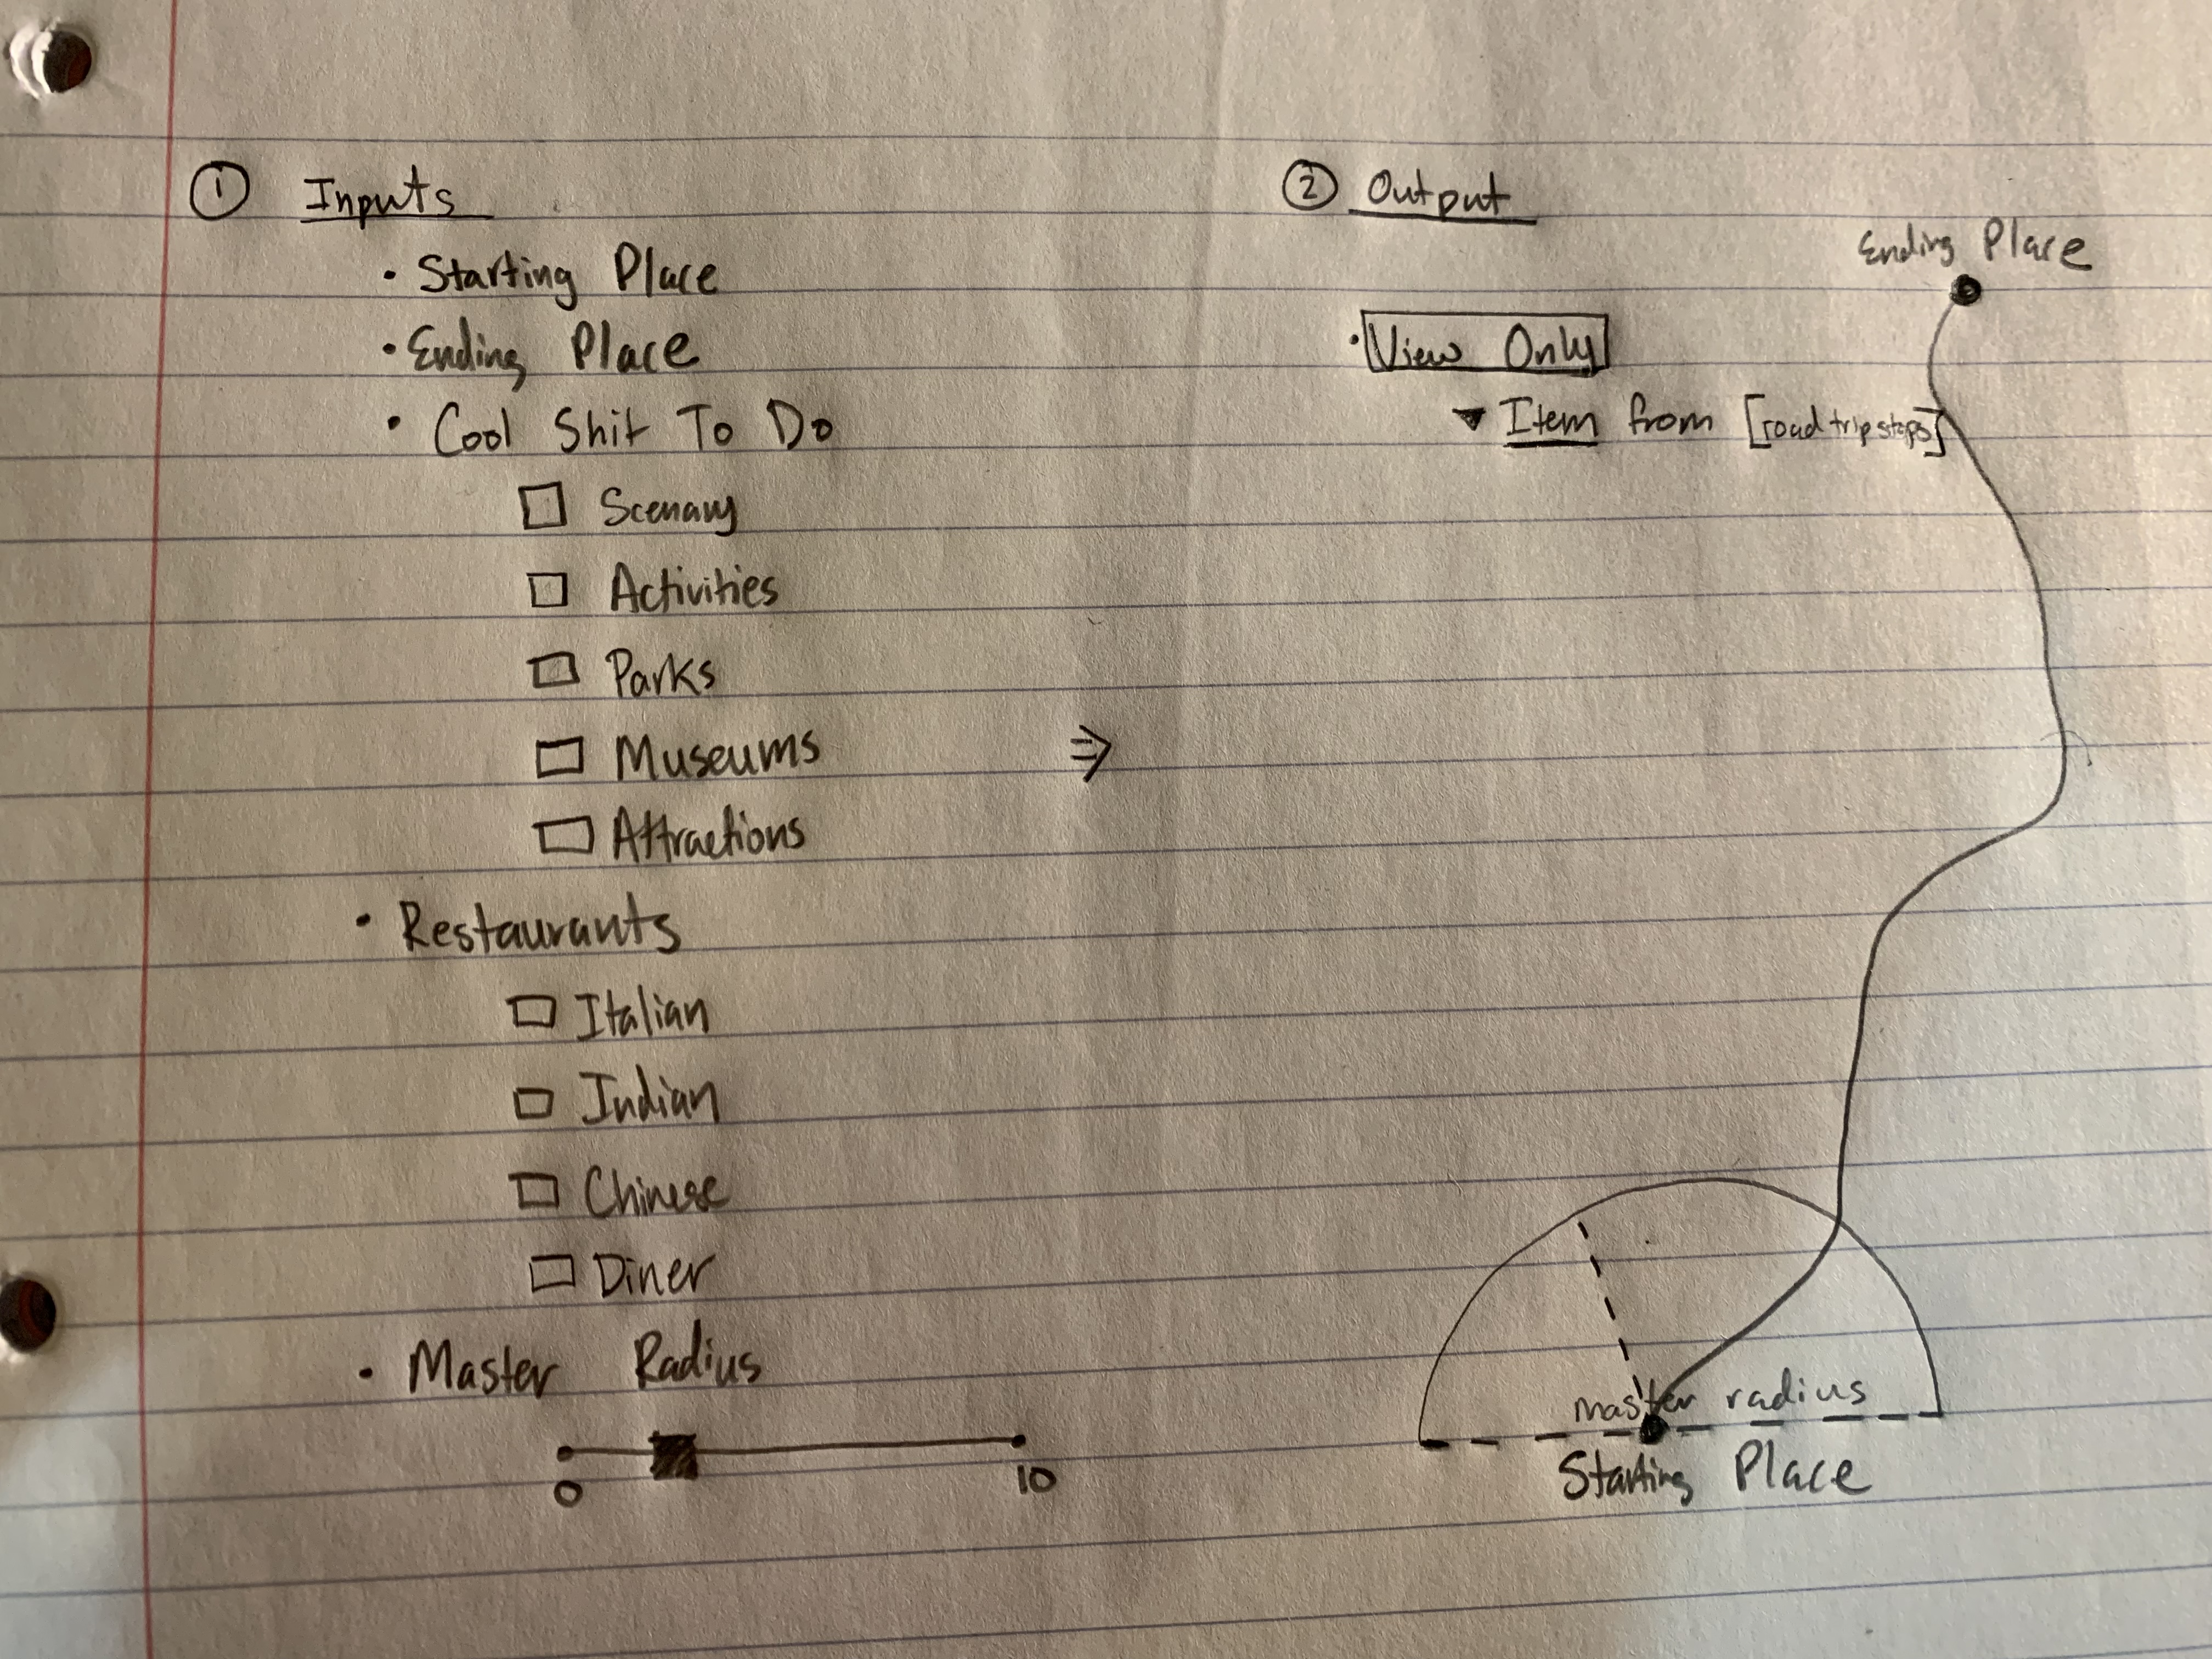 ① Inputs
• Starting Place
• Ending Place
• Cool Shit To Do
□ Scenary
□ Activities
□ Parks
□ Museums
□ Attractions
• Restaurants
□ Italian
□ Indian
□ Chinese
□ Diner
• Master Radius
0 10
⇒
② Output
• View Only
▼ Item from [road trip stops]
Ending Place
master radius
Starting Place